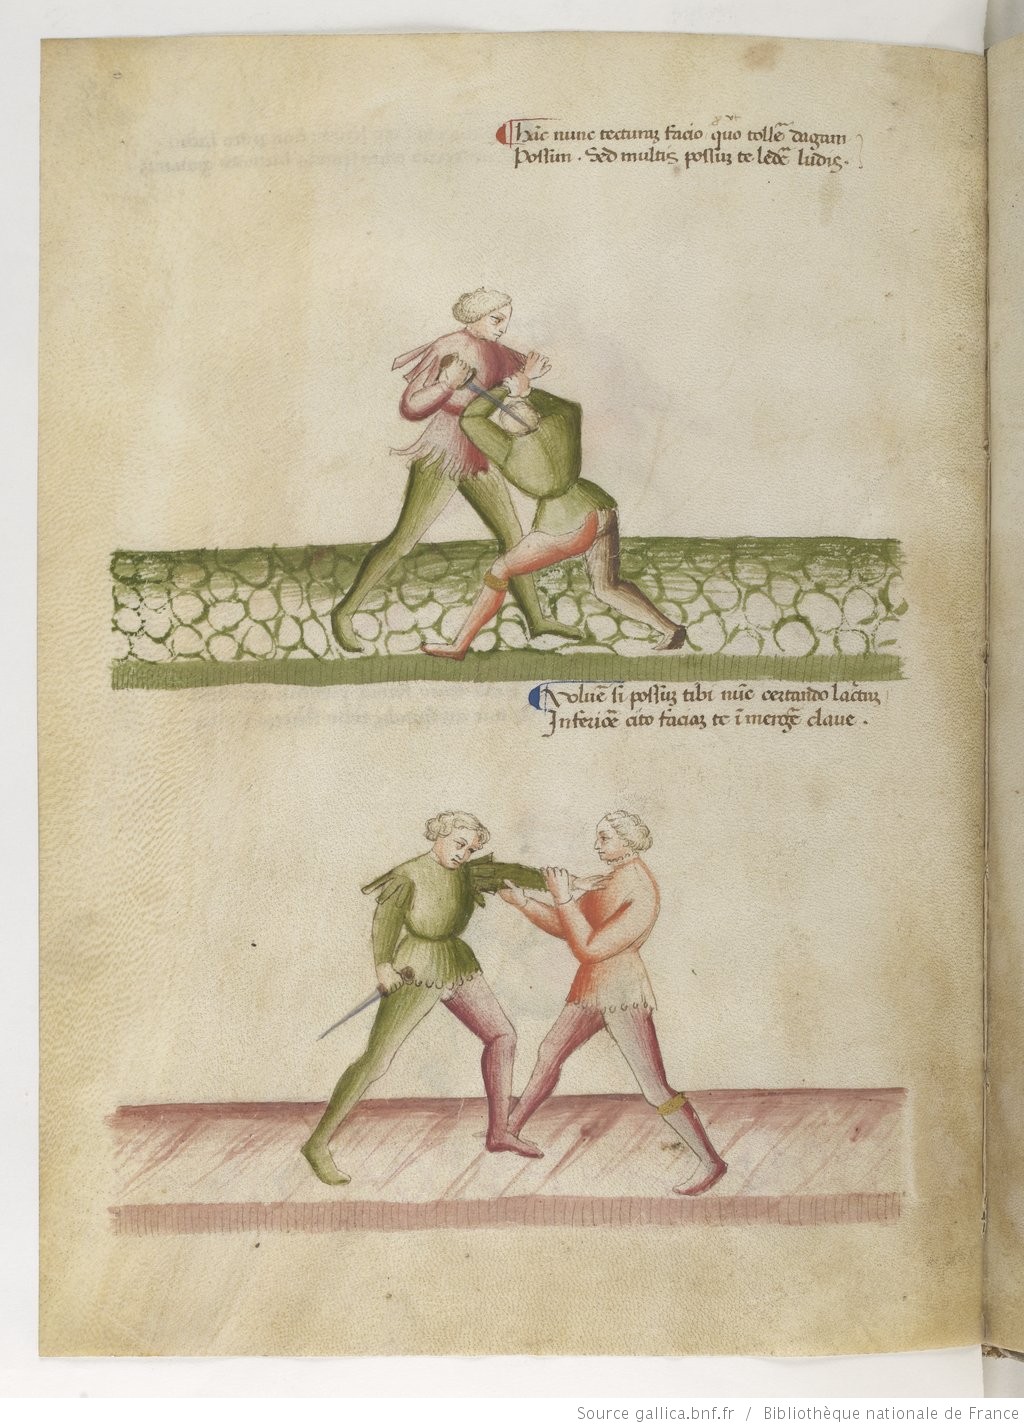 Hāc nunc tecturaꝫ facio quo᷒ tollē dagam
Possim . Sed multis possuꝫ te ledē ludis .
Voluē si possuꝫ tibi nūc certando lac̄tuꝫ
Inferiorē cito faciaꝫ te īmergē claue .
Source gallica.bnf.fr / Bibliothèque nationale de France